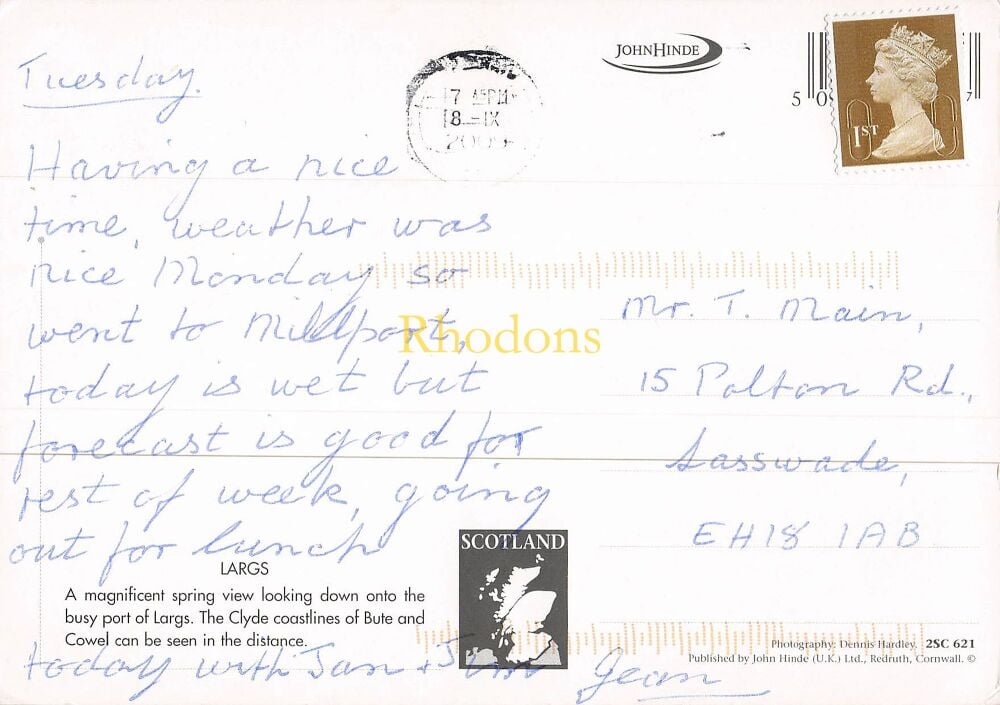 Tuesday.
Having a nice
time, weather was
nice Monday so
went to Millport,
today is wet but
forecast is good for
rest of week, going
out for lunch
today with Jan + Jim
Jean
LARGS
A magnificent spring view looking down onto the
busy port of Largs. The Clyde coastlines of Bute and
Cowel can be seen in the distance.
SCOTLAND
JOHN HINDE
7 PM
8 - IX
2009
5 0
7
1ST
Mr. T. Main,
15 Polton Rd.,
Lasswade,
EH18 1AB
Rhodons
Photography: Dennis Hardley. 2SC 621
Published by John Hinde (U.K.) Ltd., Redruth, Cornwall. ©